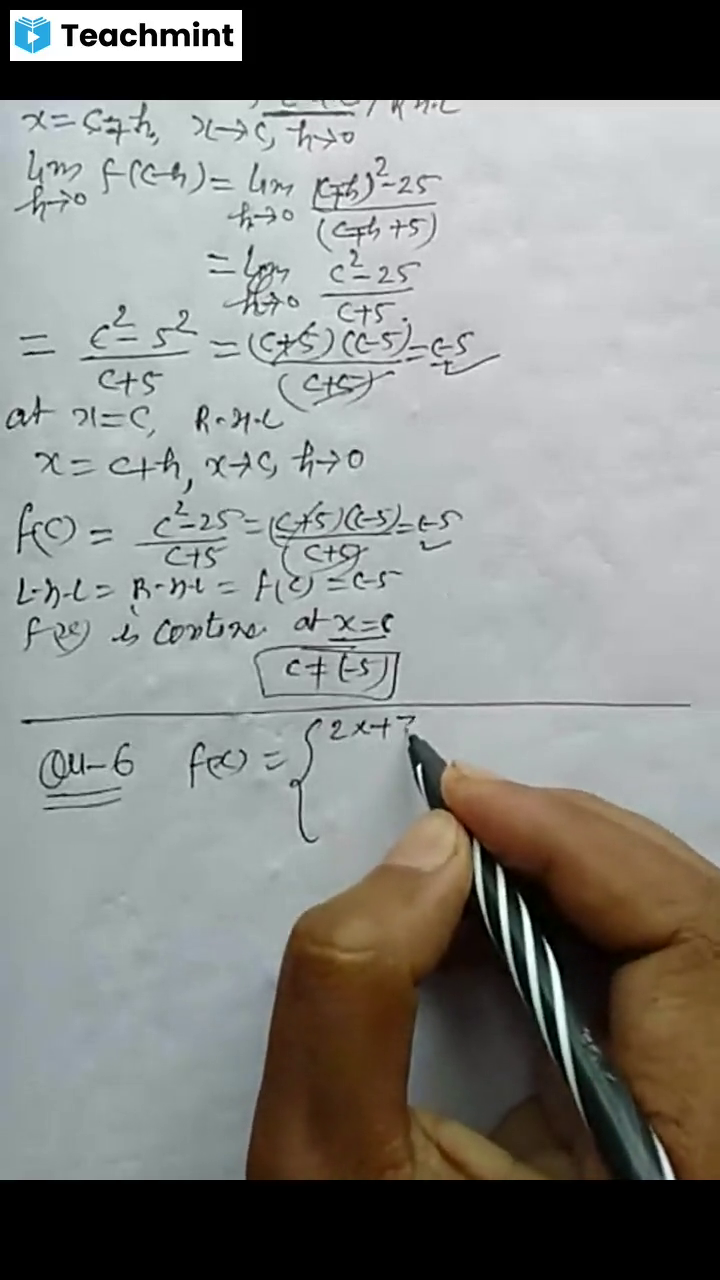 Teachmint
x = c-h, x→c, h→0
lim h→0 f(c-h) = lim h→0 (c-h)²-25 / (c-h+5)
= lim h→0 c²-25 / c+5
= c²-5² / c+5 = (c+5)(c-5) / (c+5) = c-5
at x=c, R-H-L
x = c+h, x→c, h→0
f(c) = c²-25 / c+5 = (c+5)(c-5) / (c+5) = c-5
L-H-L = R-H-L = f(c) = c-5
f(x) is contins. at x=c
c ≠ (-5)
Qu-6 f(x) = { 2x+